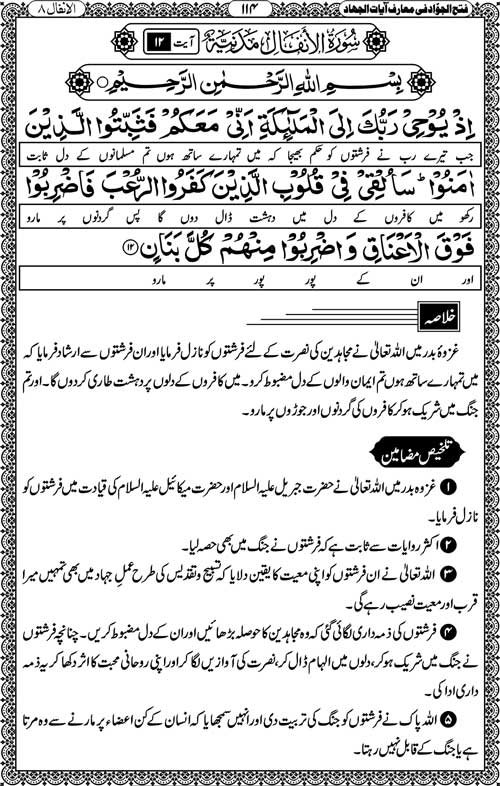 فتح الجوّاد فی معارف آیات الجهاد ۱۱۴ الانفال ۸
سُوْرَةُ الْاَنْفَالِ مَدَنِيَّةٌ آیت ۱۲
بِسْمِ اللهِ الرَّحْمٰنِ الرَّحِيْمِ
اِذْ يُوْحِيْ رَبُّكَ اِلَى الْمَلٰٓئِكَةِ اَنِّيْ مَعَكُمْ فَثَبِّتُوا الَّذِيْنَ
جب تیرے رب نے فرشتوں کو حکم بھیجا کہ میں تمہارے ساتھ ہوں تم مسلمانوں کے دل ثابت
اٰمَنُوْا ؕ سَاُلْقِيْ فِيْ قُلُوْبِ الَّذِيْنَ كَفَرُوا الرُّعْبَ فَاضْرِبُوْا
رکھو میں کافروں کے دل میں دہشت ڈال دوں گا پس گردنوں پر مارو
فَوْقَ الْاَعْنَاقِ وَاضْرِبُوْا مِنْهُمْ كُلَّ بَنَانٍ ﴿۱۲﴾
اور ان کے پور پور پر مارو
خلاصہ
غزوۂ بدر میں اللہ تعالیٰ نے مجاہدین کی نصرت کے لئے فرشتوں کو نازل فرمایا اور ان فرشتوں سے ارشاد فرمایا کہ
میں تمہارے ساتھ ہوں تم ایمان والوں کے دل مضبوط کرو۔ میں کافروں کے دلوں پر دہشت طاری کردوں گا۔ اور تم
جنگ میں شریک ہوکر کافروں کی گردنوں اور جوڑوں پر مارو۔
تلخیص مضامین
۱ غزوہ بدر میں اللہ تعالیٰ نے حضرت جبریل علیہ السلام اور حضرت میکائیل علیہ السلام کی قیادت میں فرشتوں کو
نازل فرمایا۔
۲ اکثر روایات سے ثابت ہے کہ فرشتوں نے جنگ میں بھی حصہ لیا۔
۳ اللہ تعالیٰ نے ان فرشتوں کو اپنی معیت کا یقین دلایا کہ تسبیح و تقدیس کی طرح عملِ جہاد میں بھی تمہیں میرا
قرب اور معیت نصیب رہے گی۔
۴ فرشتوں کی ذمہ داری لگائی گئی کہ وہ مجاہدین کا حوصلہ بڑھائیں اور ان کے دل مضبوط کریں۔ چنانچہ فرشتوں
نے جنگ میں شریک ہوکر، دلوں میں الہام ڈال کر، نصرت کی آوازیں لگا کر اور اپنی روحانی محبت کا اثر دکھا کر یہ ذمہ
داری ادا کی۔
۵ اللہ پاک نے فرشتوں کو جنگ کی تربیت دی اور انہیں سمجھایا کہ انسان کے کن اعضاء پر مارنے سے وہ مرتا
ہے یا جنگ کے قابل نہیں رہتا۔